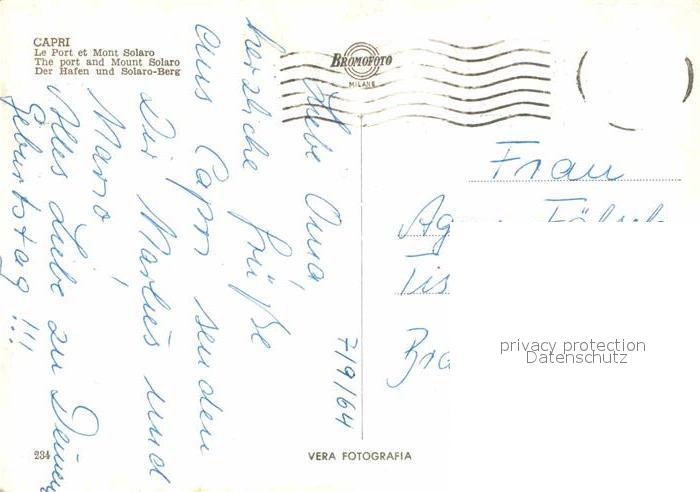 CAPRI
Le Port et Mont Solaro
The port and Mount Solaro
Der Hafen und Solaro-Berg
BROMOFOTO
MILANO
Liebe Oma,
herzliche Grüße
aus Capri senden
Dir Marlies und
Mario,
Alles Liebe zu Deinem
Geburtstag!!!
7/9/64
Frau
Ag
Tis
Bra
privacy protection
Datenschutz
234
VERA FOTOGRAFIA